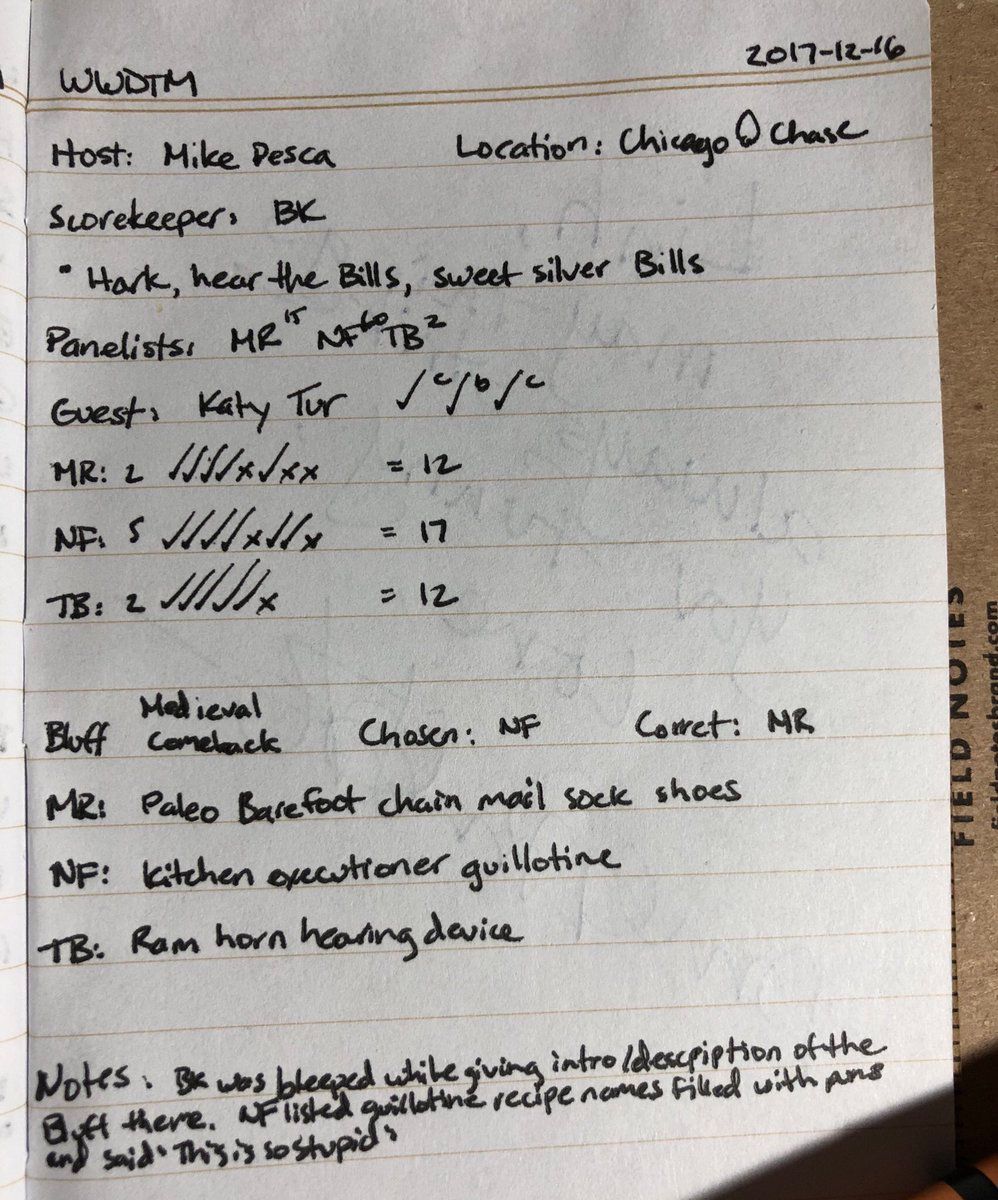 WWDTM 2017-12-16
Host: Mike Pesca Location: Chicago Chase
Scorekeeper: BK
" Hark, hear the Bills, sweet silver Bills
Panelists: MR 15 NF 60 TB 2
Guest: Katy Tur ✓c ✓b ✓c
MR: 2 ✓✓✓✓x✓xx = 12
NF: 5 ✓✓✓✓x✓✓x = 17
TB: 2 ✓✓✓✓✓x = 12
Bluff Medieval Comeback Chosen: NF Corret: MR
MR: Paleo Barefoot chain mail sock shoes
NF: kitchen executioner guillotine
TB: Ram horn hearing device
Notes: BK was bleeped while giving intro/descpiption of the
Bluff there. NF listed guillotine recipe names filled with puns
and said "This is so stupid"
FIELD NOTES